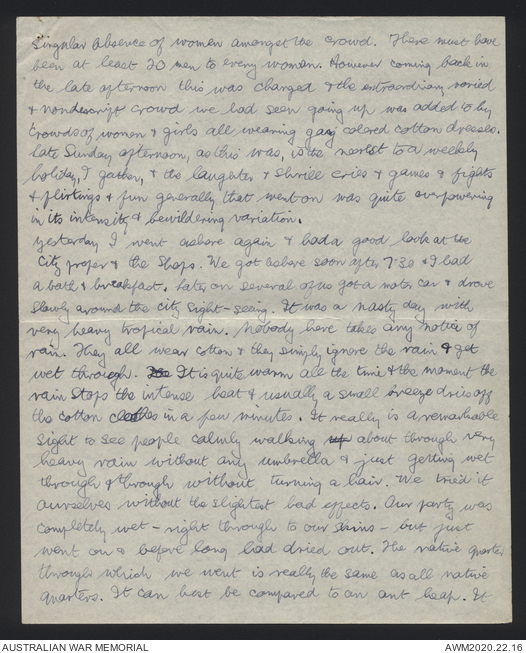 singular absence of women amongst the crowd. There must have
been at least 20 men to every woman. However coming back in
the late afternoon this was changed & the extraordinary varied
& nondescript crowd we had seen going up was added to by
crowds of women & girls all wearing gay colored cotton dresses.
Late Sunday afternoon, as this was, is the nearest to a weekly
holiday, I gather, & the laughter & shrill cries & games & fights
& flirtings & fun generally that went on was quite overpowering
in its intensity & bewildering variation.
Yesterday I went ashore again & had a good look at the
City proper & the Shops. We got ashore soon after 7.30 & I had
a bath & breakfast. Later on several of us got a motor car & drove
slowly around the city sight-seeing. It was a nasty day with
very heavy tropical rain. Nobody here takes any notice of
rain. They all wear cotton & they simply ignore the rain & get
wet through. It is quite warm all the time & the moment the
rain stops the intense heat & usually a small breeze dries off
the cotton clothes in a few minutes. It really is a remarkable
sight to see people calmly walking about through very
heavy rain without any umbrella & just getting wet
through & through without turning a hair. We tried it
ourselves without the slightest bad effects. Our party was
completely wet - right through to our skins - but just
went on & before long had dried out. The native quarter
through which we went is really the same as all native
quarters. It can best be compared to an ant heap. It
AUSTRALIAN WAR MEMORIAL
AWM2020.22.16